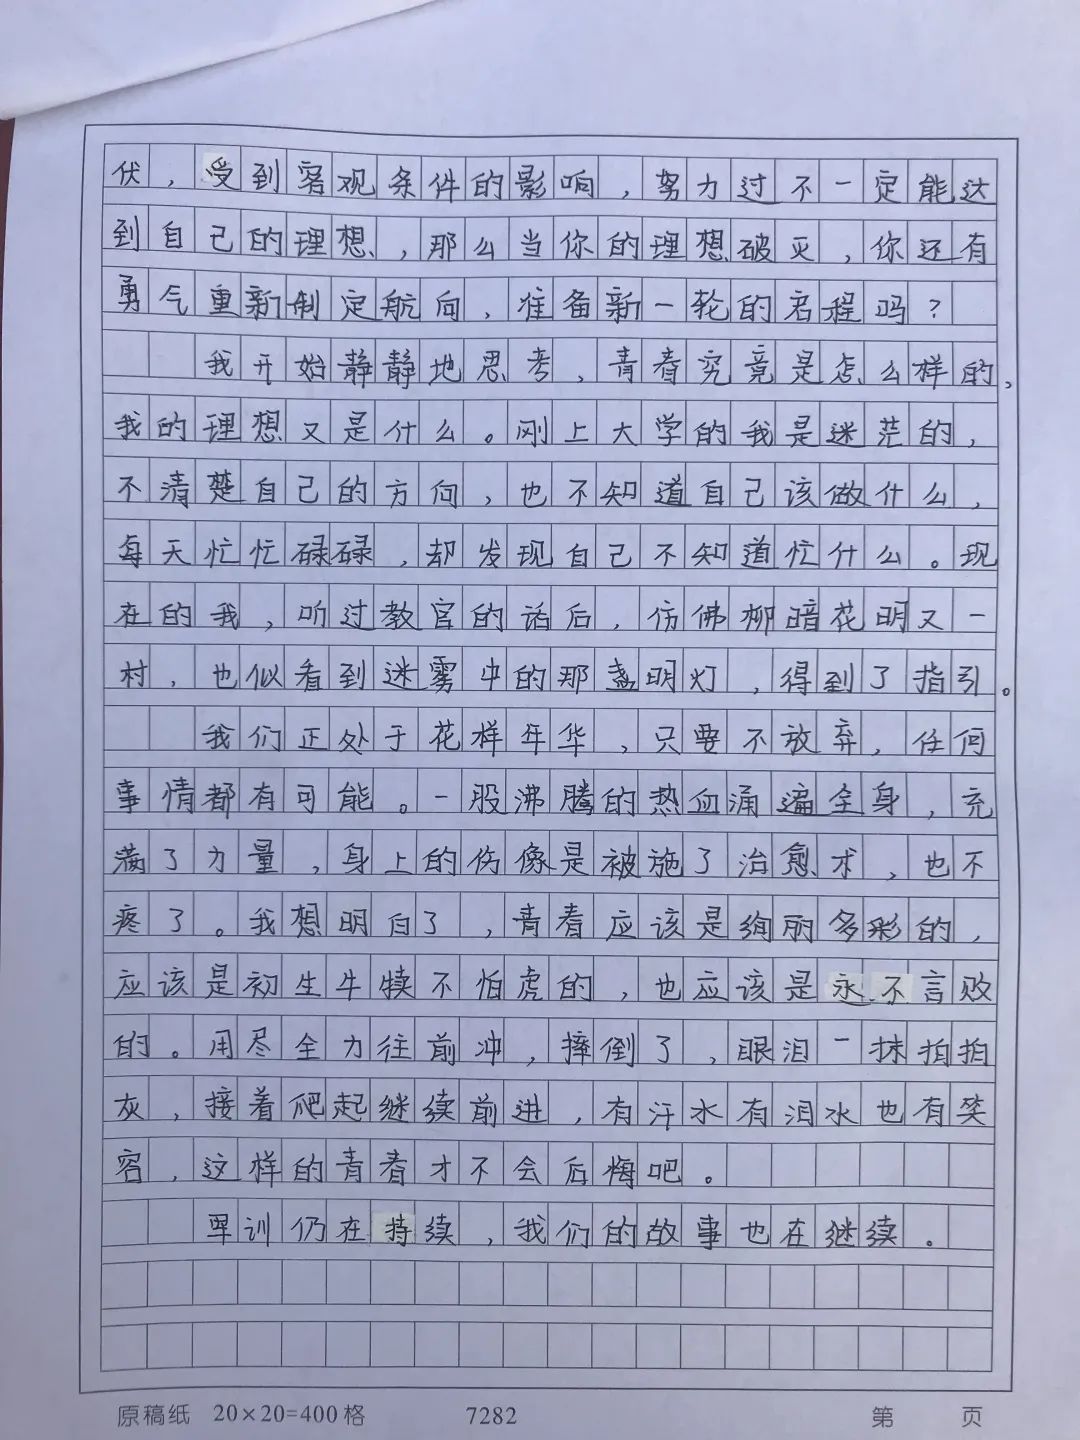 伏，受到客观条件的影响，努力过不一定能达
到自己的理想，那么当你的理想破灭，你还有
勇气重新制定航向，准备新一轮的启程吗？
我开始静静地思考，青春究竟是怎么样的，
我的理想又是什么。刚上大学的我是迷茫的，
不清楚自己的方向，也不知道自己该做什么，
每天忙忙碌碌，却发现自己不知道忙什么。现
在的我，听过教官的话后，仿佛柳暗花明又一
村，也似看到迷雾中的那盏明灯，得到了指引。
我们正处于花样年华，只要不放弃，任何
事情都有可能。一股沸腾的热血涌遍全身，充
满了力量，身上的伤像是被施了治愈术，也不
疼了。我想明白了，青春应该是绚丽多彩的，
应该是初生牛犊不怕虎的，也应该是永不言败
的。用尽全力往前冲，摔倒了，眼泪一抹拍拍
灰，接着爬起继续前进，有汗水有泪水也有笑
容，这样的青春才不会后悔吧。
军训仍在持续，我们的故事也在继续。
原稿纸 20×20=400格 7282 第 页